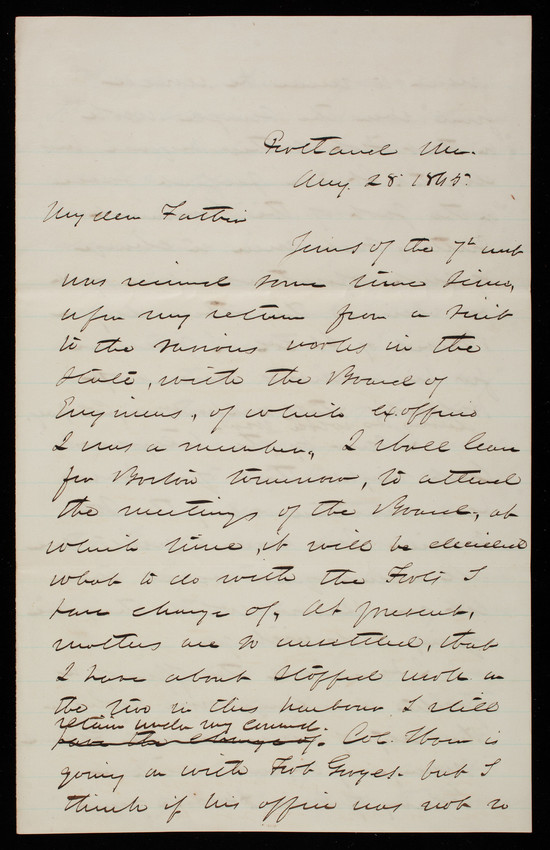 Portland Me.
Aug. 28. 1865.
My dear Father
Yours of the 7th inst
was received some time since,
upon my return from a visit
to the various works in the
State, with the Board of
Engineers, of which ex officio
I was a member, I shall leave
for Boston tomorrow, to attend
the meetings of the Board, at
which time, it will be decided
what to do with the Forts I
have charge of, At present,
matters are so unsettled, that
I have about stopped work on
the two in this harbour I still
retain under my command.
have the charge of. Col. Thom is
going on with Fort Gorges. but I
think if his office was not so